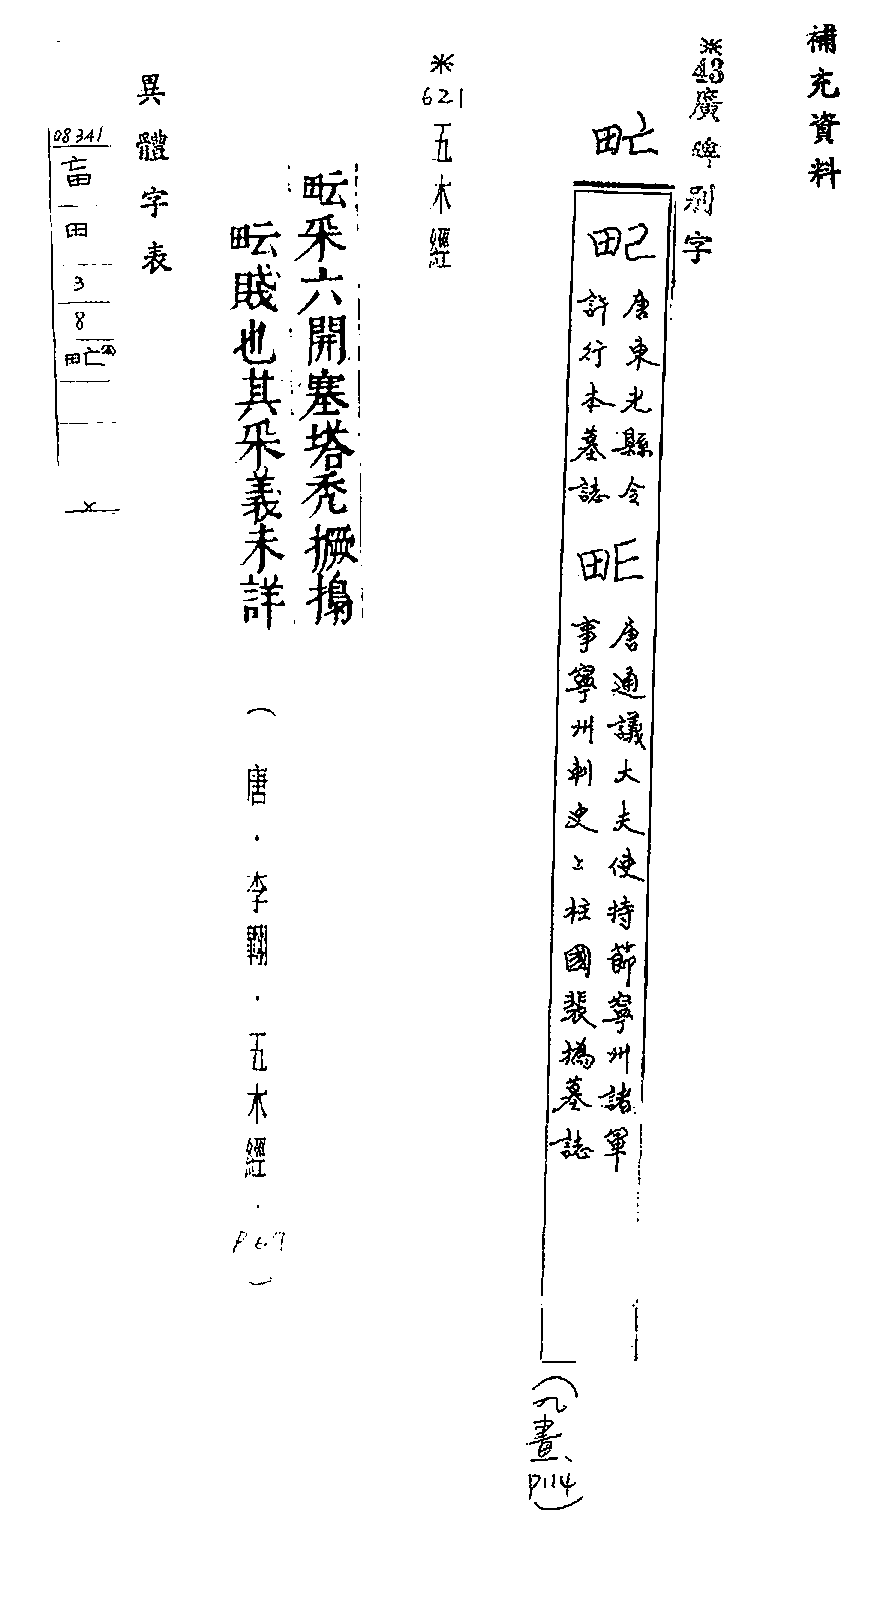 補充資料
※43廣碑別字
甿
𤰱 唐東光縣令
許行本墓誌
唐通議大夫使持節寧州諸軍
事寧州刺史上柱國裴撝墓誌
(九畫、P114)
※621五木經
畎采六開塞塔禿撅搗
畎賤也其采義未詳
(唐.李翱.五木經.P67)
異體字表
08341
田
3
8
甿
x